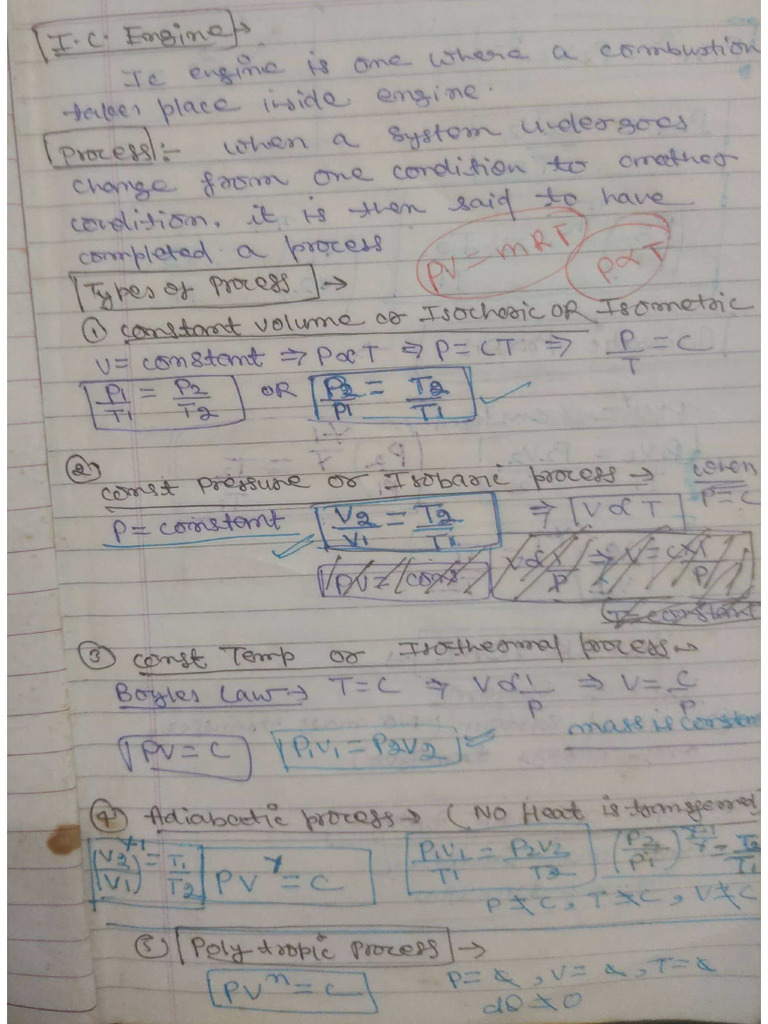 I.C. Engine →
Ic engine is one where a combustion
takes place inside engine.
Process :- when a system undergoes
change from one condition to another
condition. it is then said to have
completed a process
PV = mRT P∝T
Types of Process →
① constant volume or Isochoric OR Isometric
V= constant ⇒ P∝T ⇒ P=CT ⇒ P/T = C
P1/T1 = P2/T2 OR P2/P1 = T2/T1 ✓
② const Pressure or Isobaric process → when P=C
P= constant V2/V1 = T2/T1 ⇒ V∝T
③ const Temp or Isothermal process →
Boyles Law → T=C ⇒ V∝1/P ⇒ V= C/P
mass is constan
PV=C P1V1=P2V2 ✓
④ Adiabatic process → (NO Heat is transferred)
(V2/V1)^γ-1 = T1/T2 PV^γ = C P1V1/T1 = P2V2/T2 (P2/P1)^γ-1/γ = T2/T1
P≠C, T≠C, V≠C
⑤ Poly tropic process →
PV^n = C
dQ≠0